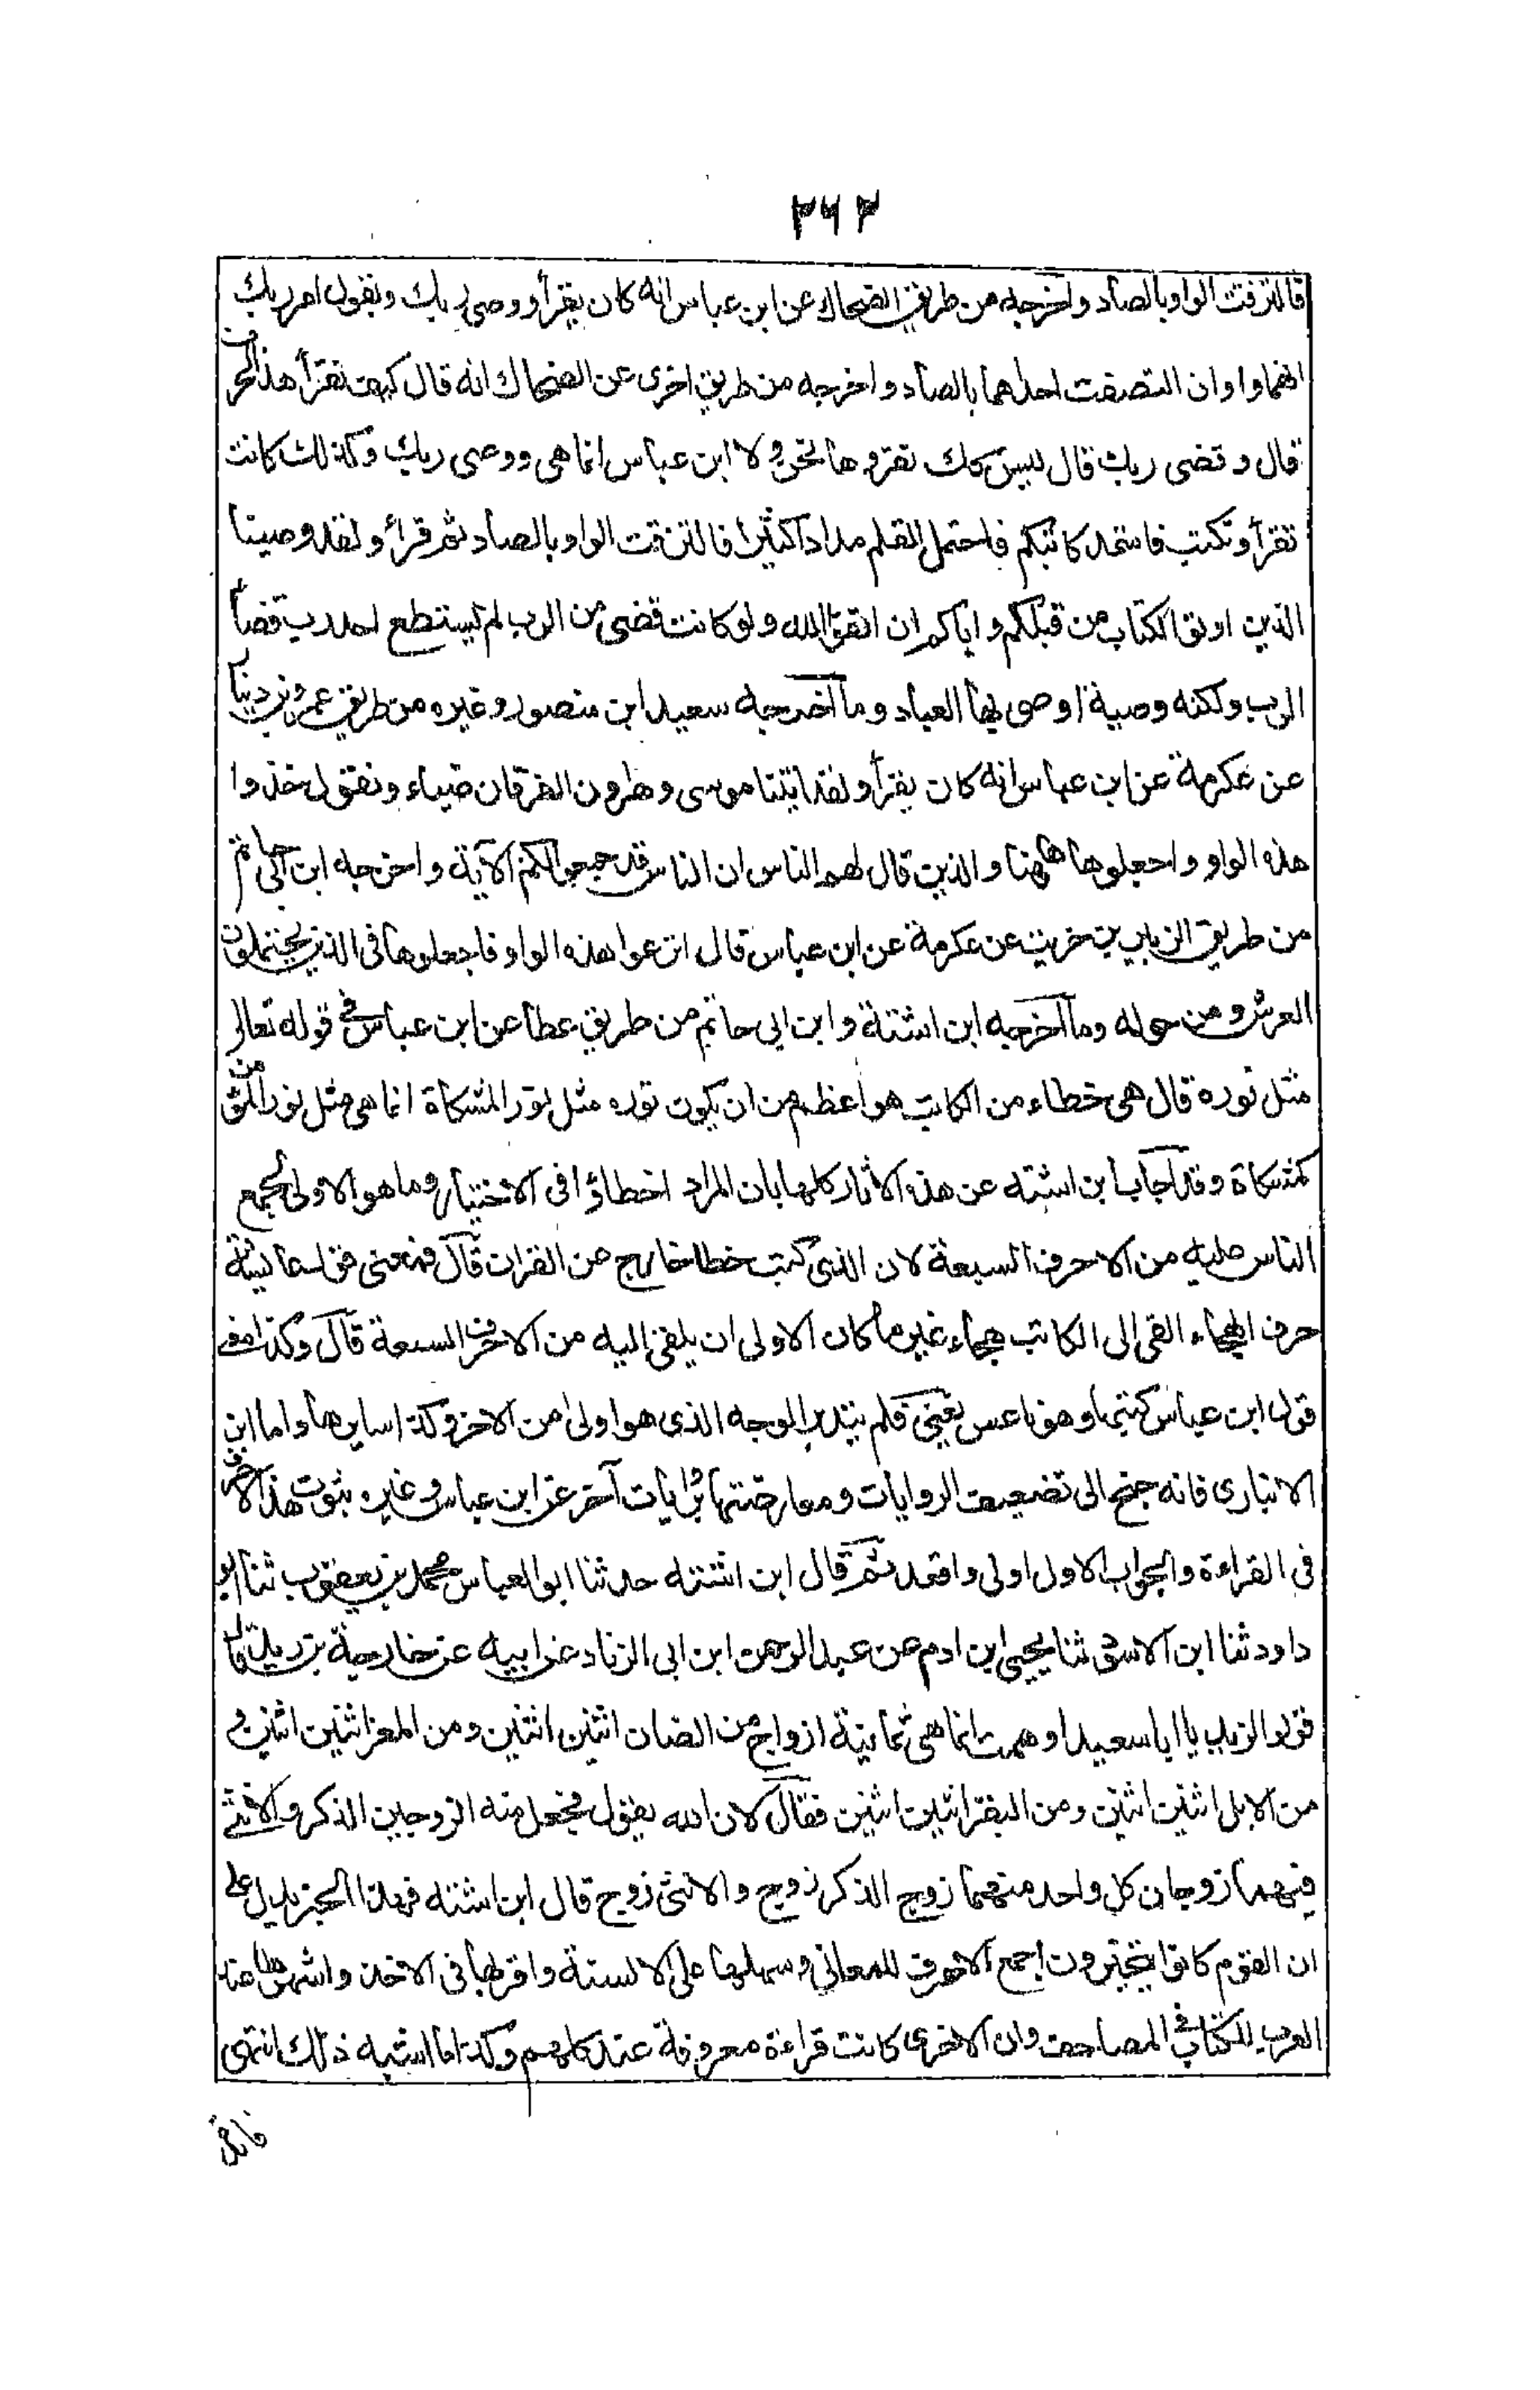 ٢٦٣
فالتزقت الواو بالصاد واخرجه من طريق الضحاك عن ابن عباس انه كان يقرأ ووصى ربك ويقول امر ربك
انهما واوان التصقت احداهما بالصاد واخرجه من طريق اخرى عن الضحاك انه قال كيف تقرأ هذا الحرف
قال وقضى ربك قال ليس كذلك نقروها نحن ولا ابن عباس انما هى ووصى ربك وكذلك كانت
تقرأ وتكتب فاستمد كاتبكم فاحتمل القلم مدادا كثيرا فالتزقت الواو بالصاد ثم قرأ ولقد وصينا
الذين اوتوا الكتاب من قبلكم واياكم ان اتقوا الله ولو كانت قضى من الرب لم يستطع احد رد قضاء
الرب ولكنه وصية اوصى بها العباد وما اخرجه سعيد ابن منصور وغيره من طريق عمرو بن دينار
عن عكرمة عن ابن عباس انه كان يقرأ ولقد اتينا موسى وهارون الفرقان ضياء ونقول خذوا
هذه الواو واجعلوها ههنا والذين قال لهم الناس ان الناس قد جمعوا لكم الآية واخرجه ابن ابى حاتم
من طريق الزبير بن خريت عن عكرمة عن ابن عباس قال انزعوا هذه الواو فاجعلوها فى الذين يحتملون
العرش ومن حوله وما اخرجه ابن اشتة وابن ابى حاتم من طريق عطا عن ابن عباس فى قوله تعالى
مثل نوره قال هى خطاء من الكاتب هو اعظم من ان يكون نوره مثل نور المشكاة انما هى مثل نور المؤمن
كمشكاة وقد اجاب ابن اشته عن هذه الآثار كلها بان المراد اخطاؤا فى الاختيار وما هو الاولى لجمع
الناس عليه من الاحرف السبعة لان الذى كتب خطا خارج من القران قال فمعنى قول عائشة
حرف الهجاء القى الى الكاتب هجاء غير ما كان الاولى ان يلقى اليه من الاحرف السبعة قال وكذا معنى
قول ابن عباس كتبها وهو ناعس يعنى فلم يتدبر الوجه الذى هو اولى من الاخر وكذا سايرها واما ابن
الانبارى فانه جنح الى تضعيف الروايات ومعارضتها بروايات آخر عن ابن عباس وغيره بثبوت هذه الاحرف
فى القراءة والجواب الاول اولى واقعد ثم قال ابن اشته حدثنا ابو العباس محمد بن يعقوب ثنا ابو
داود ثنا ابن الاسود ثنا يحيى ابن ادم عن عبد الرحمن ابن ابى الزناد عن ابيه عن خارجة بن زيد قال
قولوا لزيد يا ابا سعيد اوهمت انما هى ثمانية ازواج من الضان اثنين اثنين ومن المعز اثنين اثنين و
من الابل اثنين اثنين ومن البقر اثنين اثنين فقال لان الله يقول فجعل منه الزوجين الذكر والانثى
فهما زوجان كل واحد منهما زوج الذكر زوج والانثى زوج قال ابن اشته فهذا الخبر يدل على
ان القوم كانوا يتخيرون اجمع الاحرف للمعانى وسهلها على الالسنة واقربها فى الاخذ واشهرها عند
العرب للكتاب فى المصاحف وان الاخرى كانت قراءة معروفة عند كلهم وكذا ما اشبه ذلك انتهى